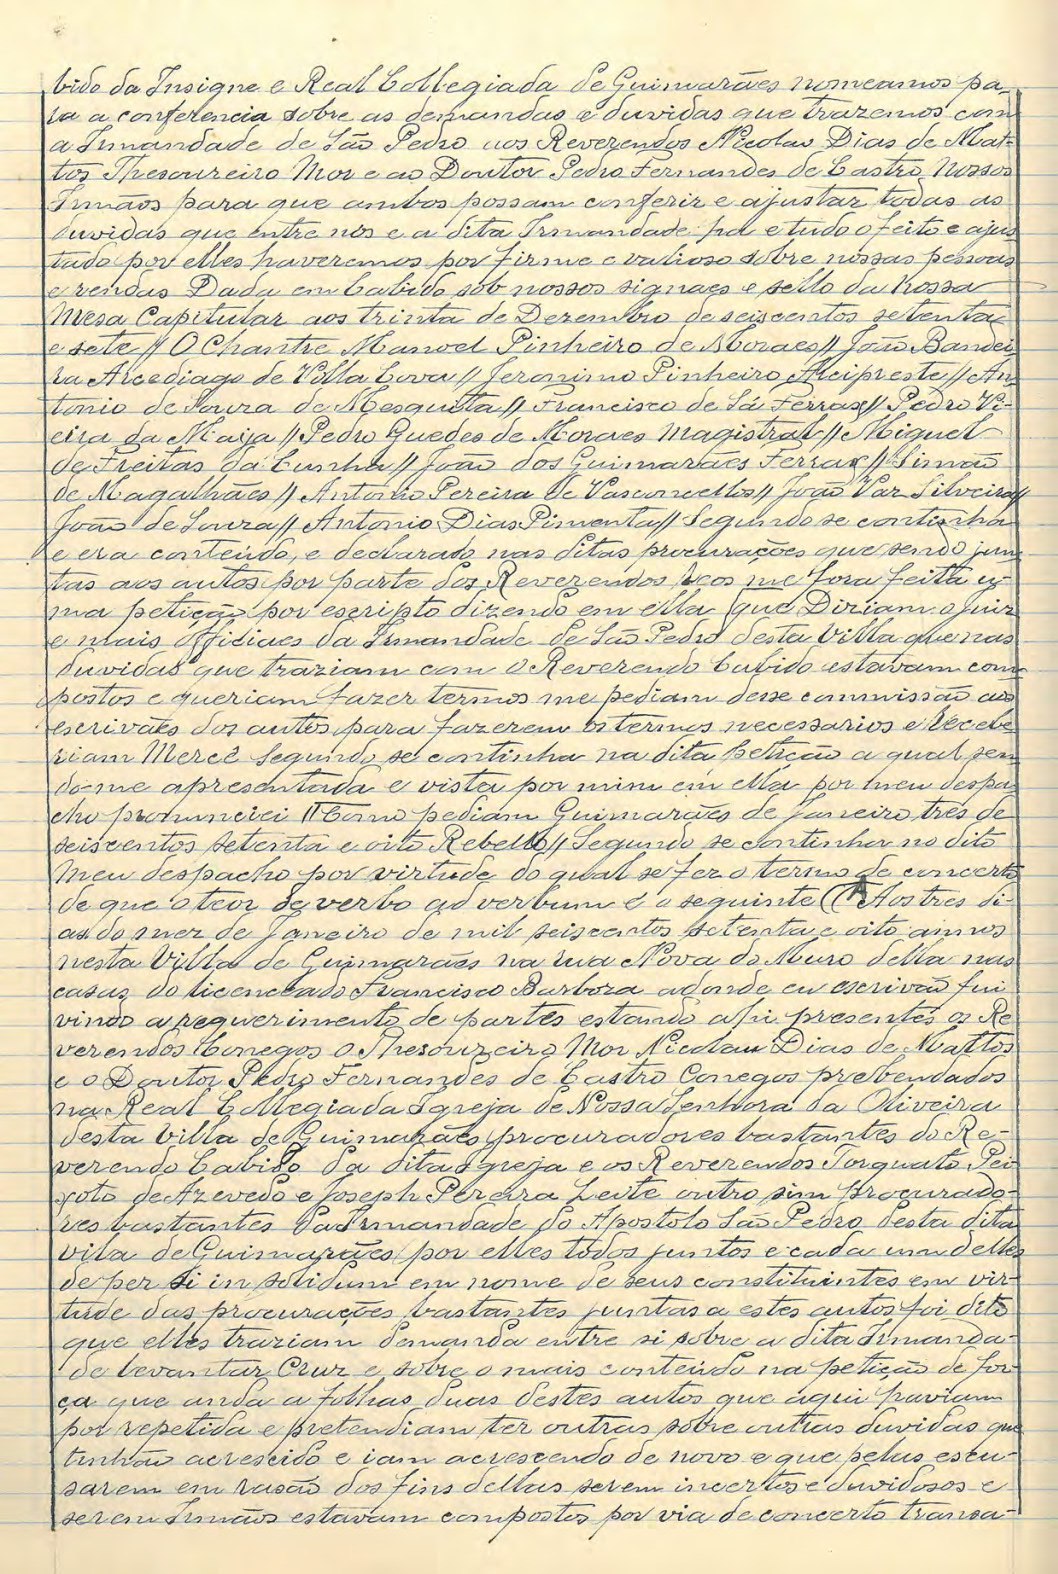 bido da Insigne e Real Collegiada de Guimarães nomeamos pa-
ra a conferencia sobre as demandas e duvidas que trazemos com
a Irmandade de São Pedro aos Reverendos Nicolau Dias de Mat-
tos Thesoureiro Mor e ao Doutor Pedro Fernandes de Castro Nossos
Irmãos para que ambos possam conferir e ajustar todas as
duvidas que entre nós e a dita Irmandade ha e tudo o feito e ajus
tado por elles haveremos por firme e valioso sobre nossas pessoas
e rendas Dada em Cabido sob nossos signaes e sello da Nossa
Mesa Capitular aos trinta de Dezembro de seiscentos setenta
e sete // O Chantre Manoel Pinheiro de Moraes // João Bandei
ra Arcediago de Villa Cova // Jeronimo Pinheiro Arcipreste // An
tonio de Souza de Mesquita // Francisco de Sá Ferras // Pedro Vi-
eira da Maija // Pedro Guedes de Moraes Magistral // Miguel
de Freitas da Cunha // João dos Guimarães Ferras // Simão
de Magalhães // Antonio Pereira de Vasconcellos // João Vaz Silveira //
João de Souza // Antonio Dias Pimenta // Segundo se continha
e era conteúdo, e declarado nas ditas procurações que sendo jun
tas aos autos por parte dos Reverendos Reos me fora feita u-
ma petição por escripto dizendo em ella que Diriam o juiz
e mais officiaes da Irmandade de São Pedro desta Villa que nas
duvidas que traziam com o Reverendo Cabido estavam com
postos e queriam fazer termos me pediam desse commissão aos
escrivães dos autos para fazerem os termos necessarios e Recebe
riam Mercê Segundo se continha na dita petição a qual sen
do-me apresentada e vista por mim em ella por meu despa
cho pronunciei // Como pediam Guimarães de Janeiro três de
seiscentos setenta e oito Rebello // Segundo se continha no dito
Meu despacho por virtude do qual se fez o termo de concerto
de que o teor de verbo ad verbum é o seguinte (Aos tres di-
as do mez de Janeiro de mil seiscentos setenta e oito annos
nesta Villa de Guimarães na rua Nova do Muro della nas
casas do licenceado Francisco Barboza adonde eu escrivão fui
vindo a requerimento de partes estando ahi presentes os Re
verendos Conegos O Thesoureiro Mor Nicolau Dias de Mattos
e o Doutor Pedro Fernandes de Castro Conegos prebendados
na Real Collegiada Igreja de Nossa Senhora da Oliveira
desta Villa de Guimarães procuradores bastantes do Re-
verendo Cabido da dita Igreja e os Reverendos Torquato Pei
xoto de Azevedo e Joseph Pereira Leite outro sim procurado-
res bastantes da Irmandade do Apostolo São Pedro desta dita
vila de Guimarães por elles todos juntos e cada um delles
de per si in solidum em nome de seus constituintes em vir-
tude das procurações bastantes juntas a estes autos foi dito
que elles traziam demanda entre si sobre a dita Irmanda-
de levantar Cruz e sobre o mais conteúdo na petição de for-
ça que anda a folhas duas destes autos que aqui haviam
por repetida e pretendiam ter outras sobre outras duvidas que
tinhão acrescido e iam acrescendo de novo e que pelas escu-
sarem em rasão dos fins dellas serem incertos e duvidosos e
serem Irmãos estavam compostos por via de concerto transa-